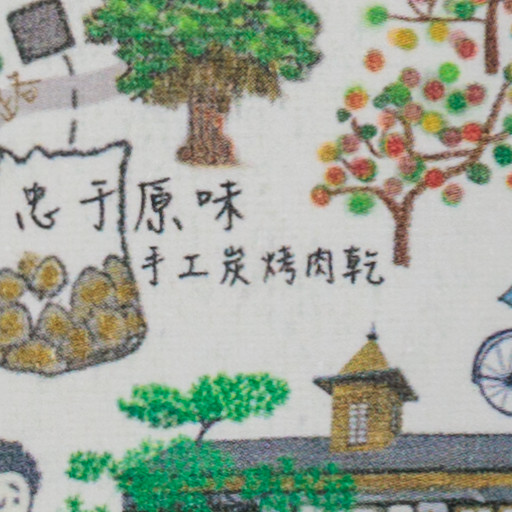 忠于原味
手工炭烤肉乾